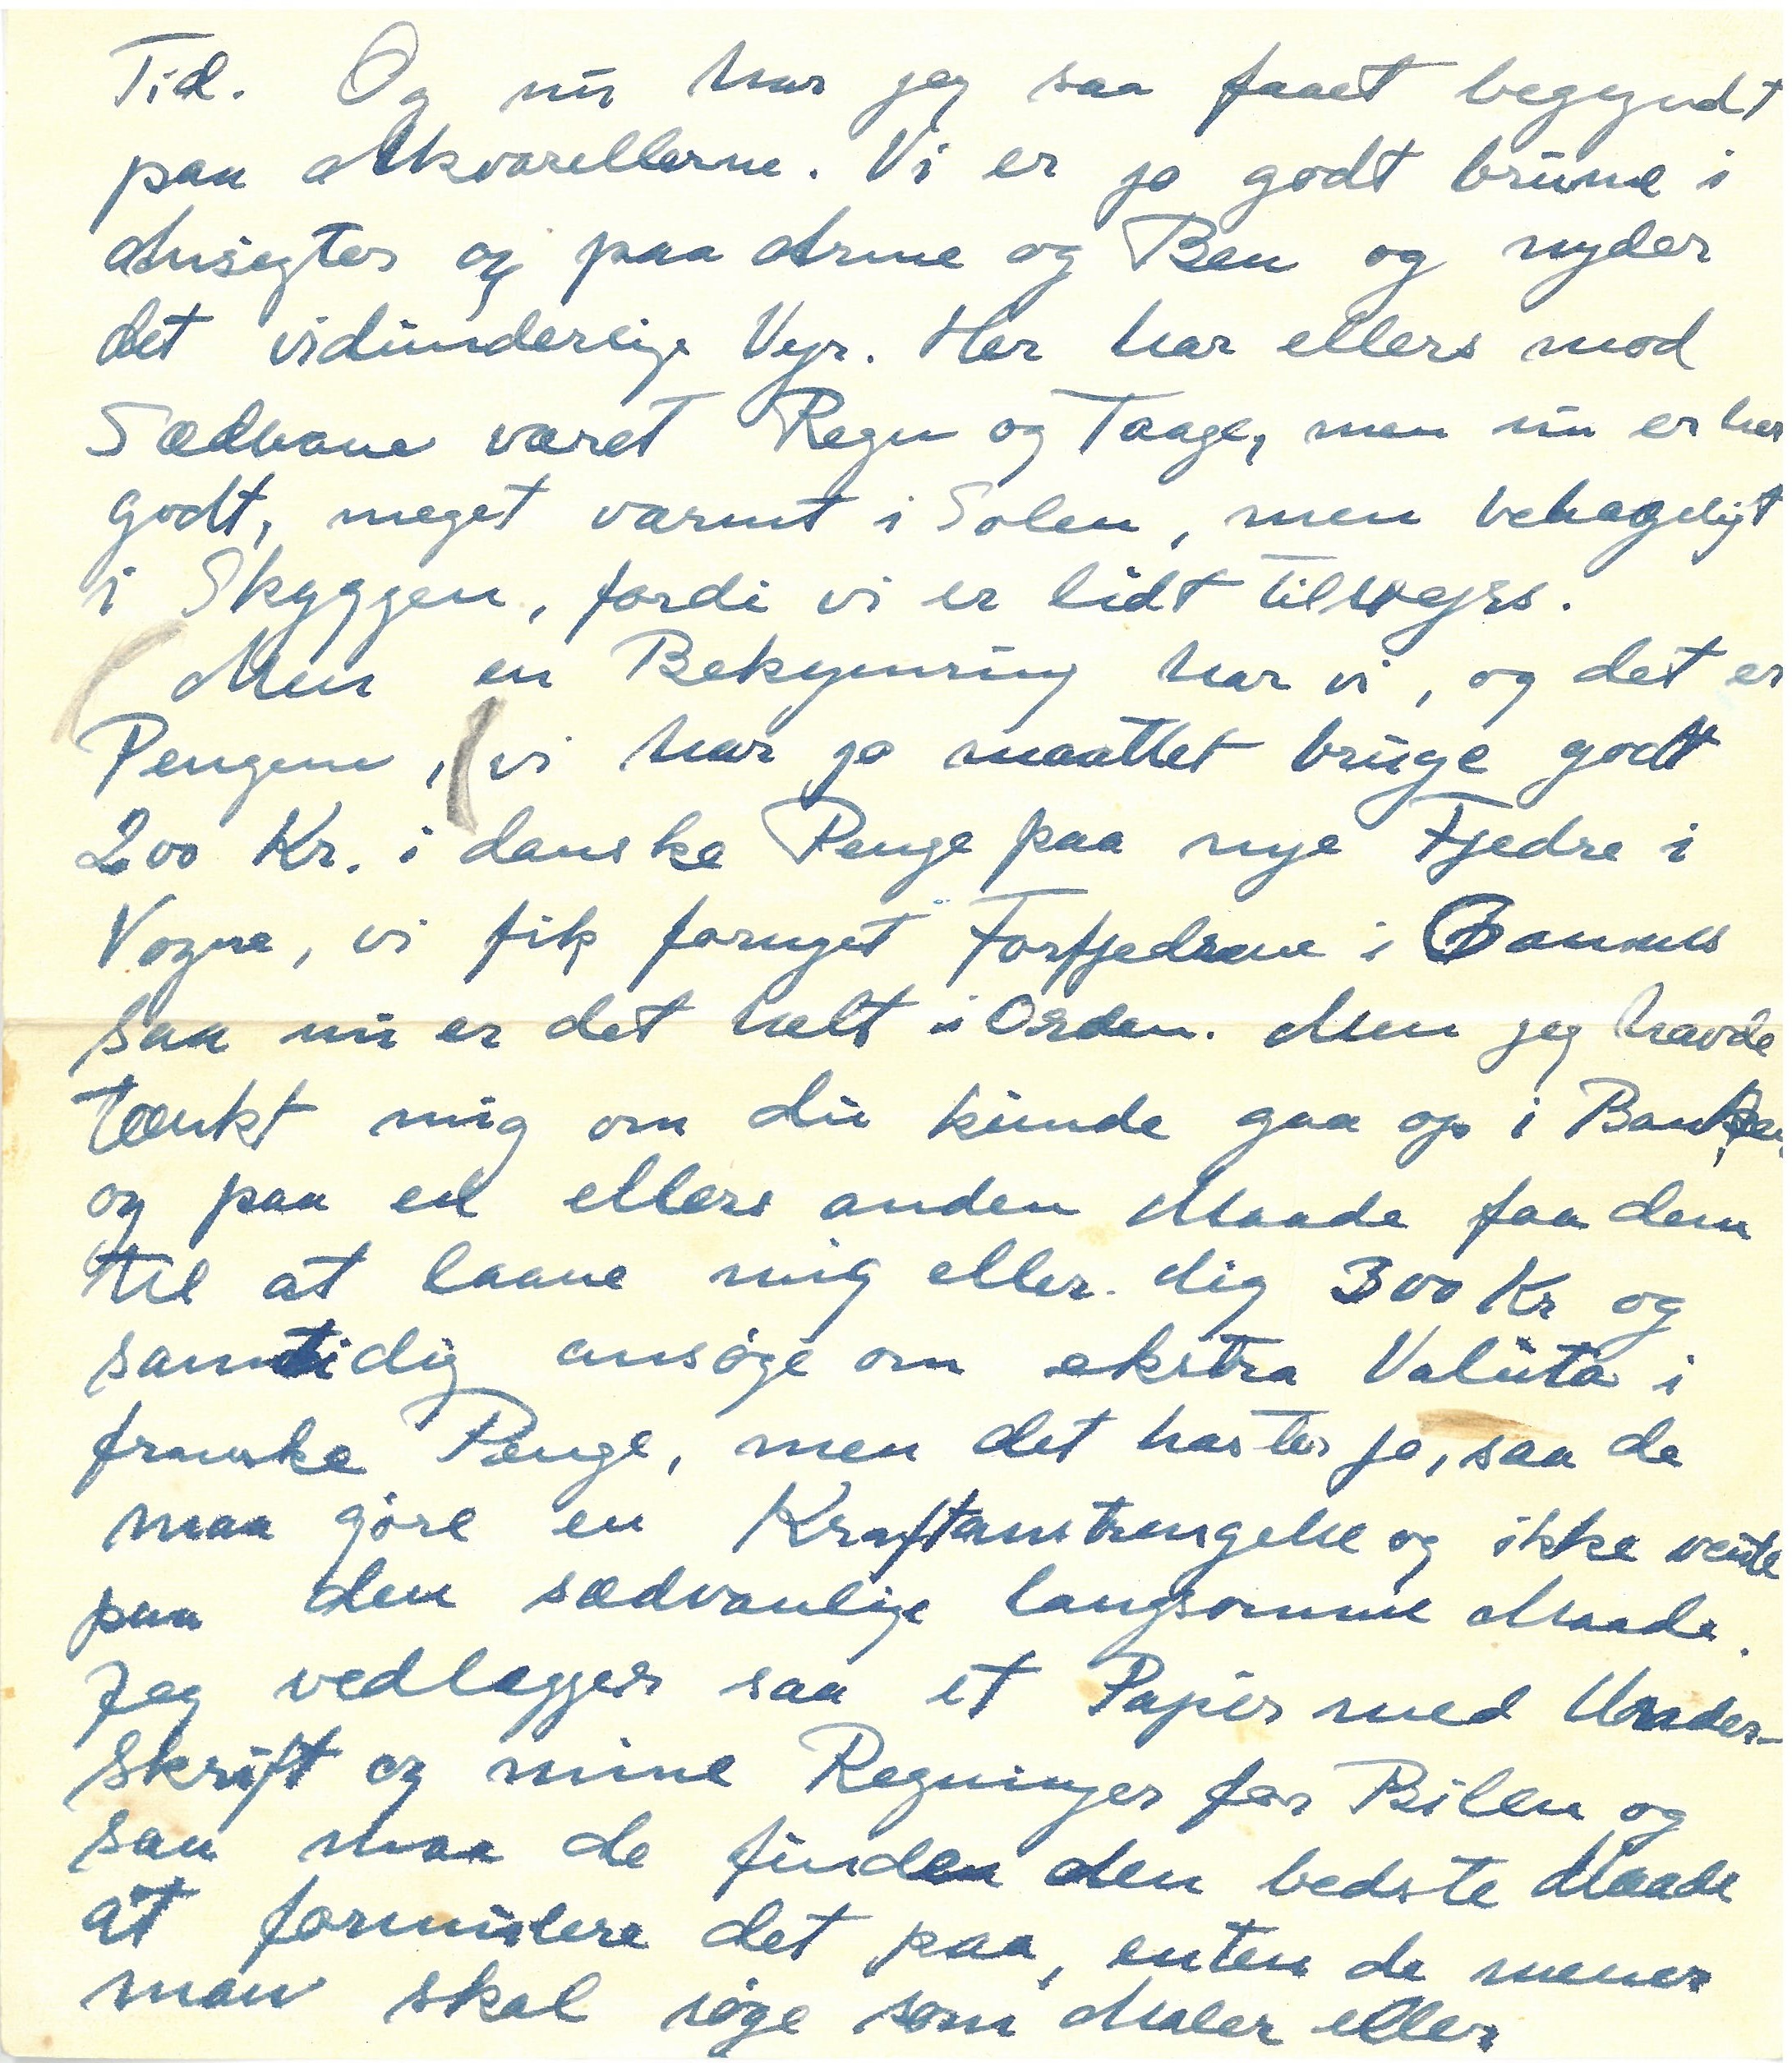 Tid. Og nu har jeg saa faaet begyndt
paa Akvarellerne. Vi er jo godt brune i
Ansigter og paa Arme og Ben og nyder
det vidunderlige Vejr. Her har ellers mod
Sædvane været Regn og Taage, men nu er her
godt, meget varmt i Solen, men behageligt
i Skyggen, fordi vi er lidt tilvejrs.
Men en Bekymring har vi, og det er
Pengene, vi har jo maattet bruge godt
200 Kr. i danske Penge paa nye Fjedre i
Vogne, vi fik fornyet Forfjedrene i Cannes
saa nu er det helt i Orden. Men jeg havde
tænkt mig om du kunde gaa op i Banken,
og paa en ellers anden Maade faa dem
til at laane mig eller dig 300 Kr og
samtidig ansøge om ekstra Valuta i
franske Penge, men det haster jo, saa de
maa gøre en Kraftanstrengelse og ikke vente
paa den sædvanlige langsomme Maade.
Jeg vedlægger saa et Papir med Under-
skrift og mine Regninger for Bilen og
saa maa de finden den bedste Maade
at formulere det paa, enten de mener
man skal søge som Maler eller